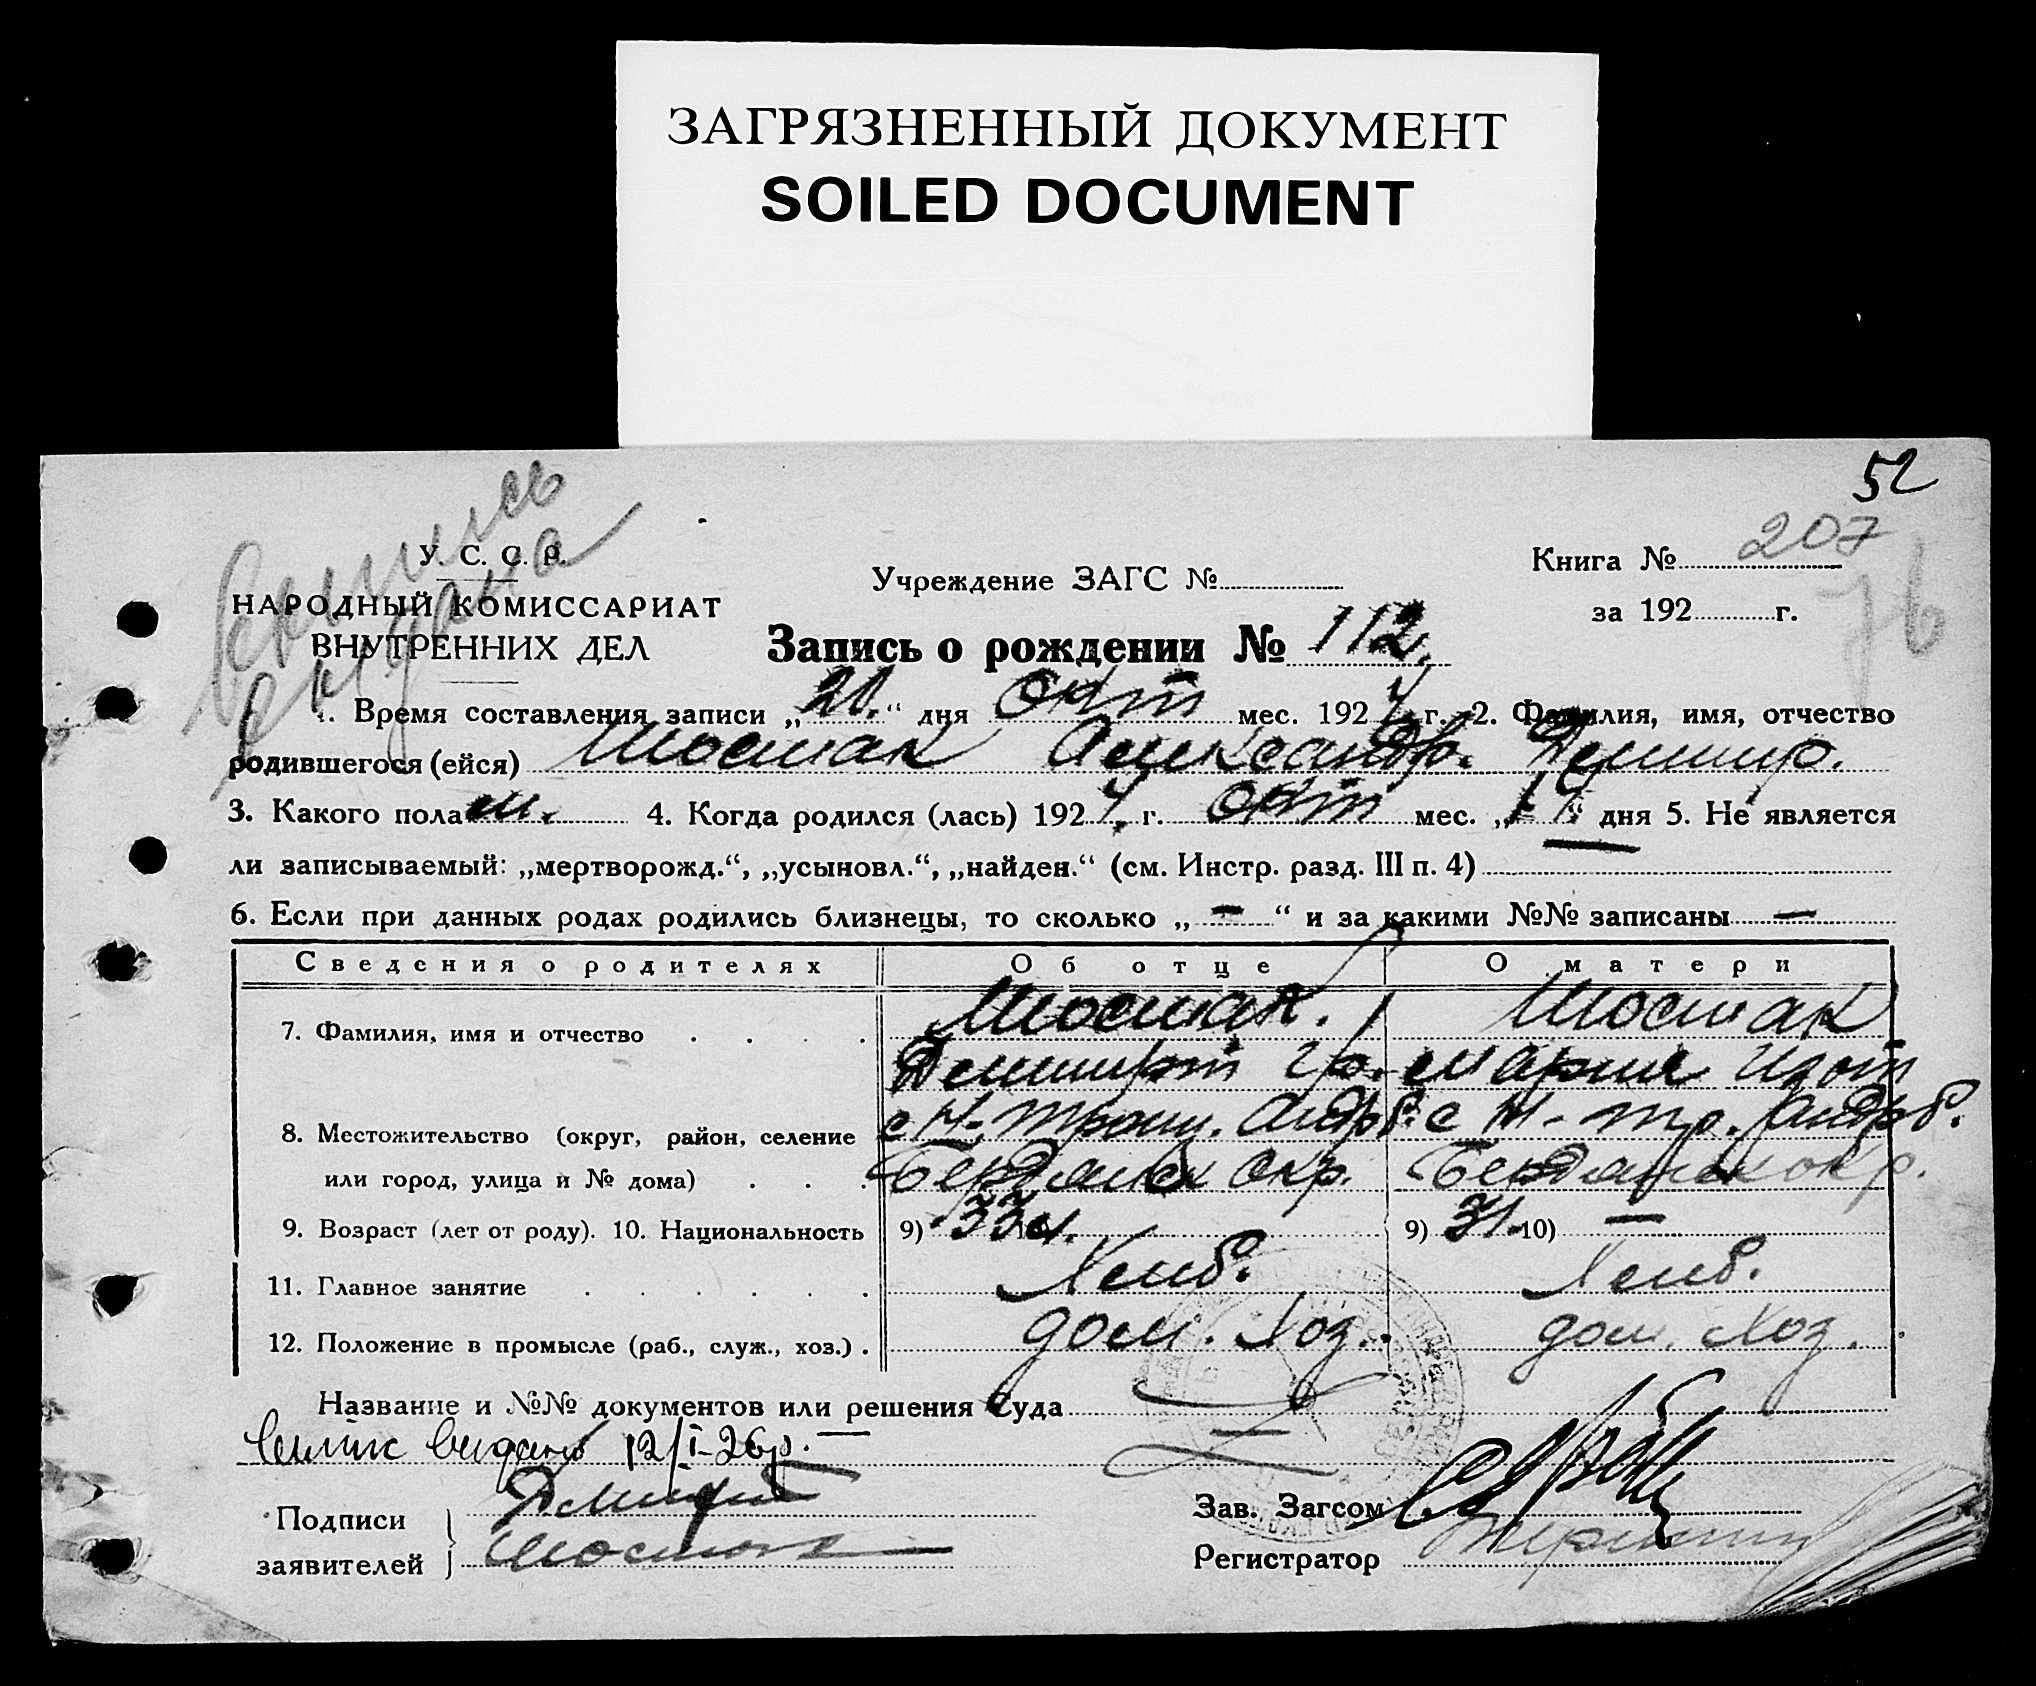 ЗАГРЯЗНЕННЫЙ ДОКУМЕНТ
SOILED DOCUMENT
52
У. С. С. Р.
НАРОДНЫЙ КОМИССАРИАТ
ВНУТРЕННИХ ДЕЛ
Учреждение ЗАГС №
Книга № 207
за 192 г.
76
Запись о рождении № 112.
1. Время составления записи „20.“ дня Окт мес. 1924 г. 2. Фамилия, имя, отчество
родившегося (ейся) Шостак Александр. Демитр.
3. Какого пола м. 4. Когда родился (лась) 1924 г. окт мес. „11“ дня 5. Не является
ли записываемый: „мертворожд.“, „усыновл.“, „найден.“ (см. Инстр. разд. III п. 4)
6. Если при данных родах родились близнецы, то сколько „ — “ и за какими №№ записаны —
Сведения о родителях Об отце О матери
7. Фамилия, имя и отчество Шостак. Шостак
Демитрт Гр. Мария Изот
8. Местожительство (округ, район, селение с Н. Троиц. Андр с Н-Тр. Андр
или город, улица и № дома) Бердянск окр. Бердянск окр.
9. Возраст (лет от роду). 10. Национальность 9) 33 9) 31. 10) —
11. Главное занятие Хлеб. Хлеб.
12. Положение в промысле (раб., служ., хоз.) дом. хоз. дом. хоз.
Название и №№ документов или решения Суда
выдано 12/I-26р. —
Подписи Дмитрий
заявителей Шостак
Зав. Загсом
Регистратор